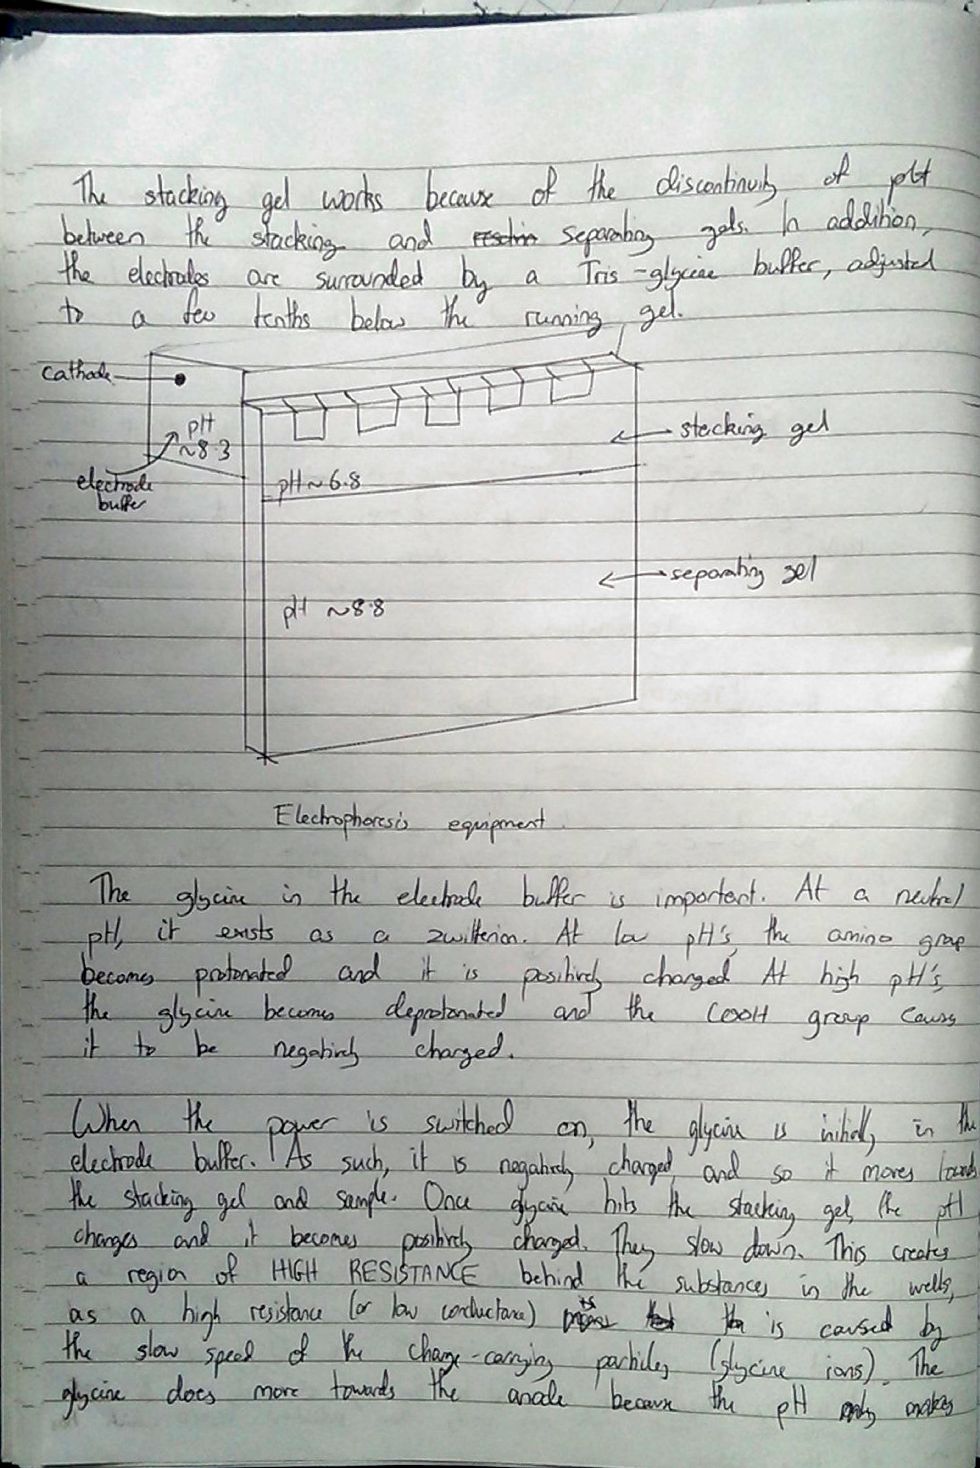 The stacking gel works because of the discontinuity of pH
between the stacking and separating gels. In addition,
the electrodes are surrounded by a Tris-glycine buffer, adjusted
to a few tenths below the running gel.
cathode
pH
~8.3
stacking gel
electrode
buffer
pH ~ 6.8
separating gel
pH ~8.8
Electrophoresis equipment.
The glycine in the electrode buffer is important. At a neutral
pH, it exists as a zwitterion. At low pH's, the amino group
becomes protonated and it is positively charged. At high pH's,
the glycine becomes deprotonated and the COOH group causes
it to be negatively charged.
When the power is switched on, the glycine is initially in the
electrode buffer. As such, it is negatively charged, and so it moves towards
the stacking gel and sample. Once glycine hits the stacking gel, the pH
changes and it becomes positively charged. They slow down. This creates
a region of HIGH RESISTANCE behind the substances in the wells,
as a high resistance (or low conductance) is caused by
the slow speed of the charge-carrying particles (glycine ions). The
glycine does move towards the anode because the pH makes